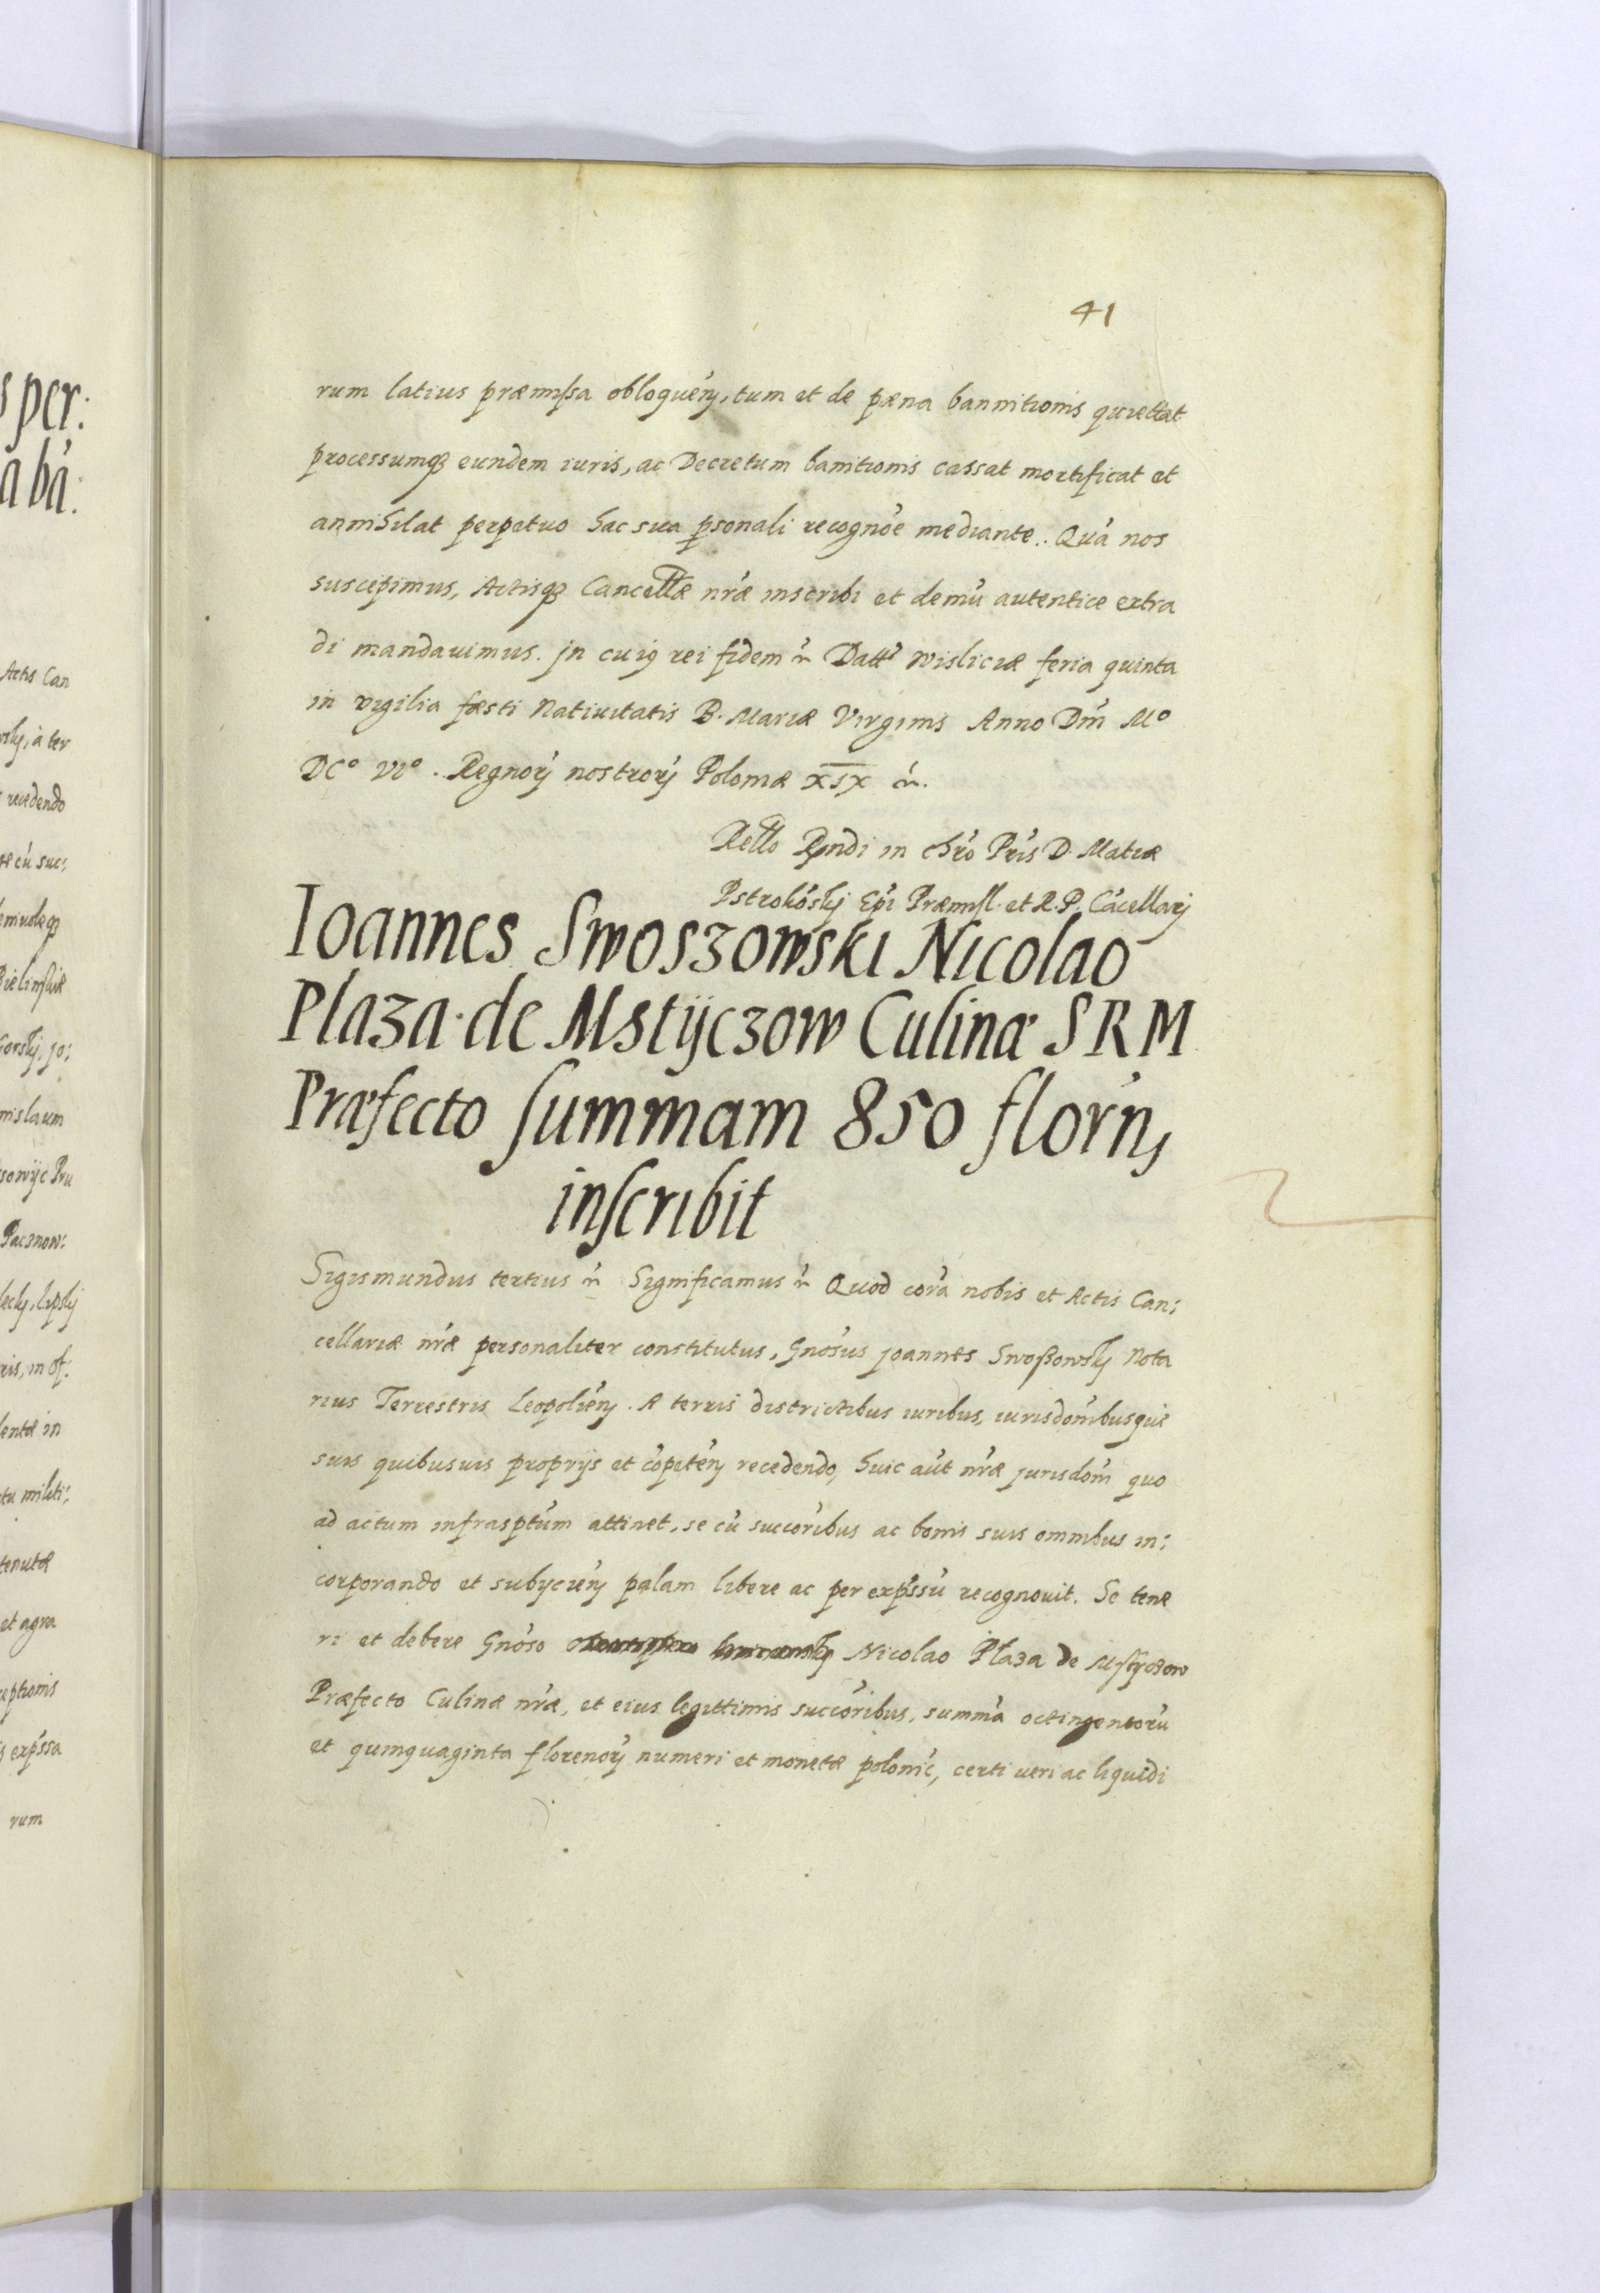 s per:
a bá:
Actis Can
wsky, à ter
recedendo
æ cú suc:
Gorsky, Jo:
mislaum
sowijc Pru
Pacznow:
lecky, lipsky
ris, in of:
lentæ in
tu militi:
tenutæ
et agra
ceptionis
s exp̃ssa
rum
41
rum latius præmissa obloqueń, tum et de pæna bannitionis quiettat
processumqʒ eundem iuris, ac Decretum banitionis cassat mortificat et
annihilat perpetuo hac sua psonali recognóe mediante. Quá nos
suscepimus, Actisqʒ Cancellæ nr̃æ inscribi et demú autentice extra
di mandavimus. Jn cuiꝯ rei fidem ẽ Datt̃ Wisliciæ feria quinta
in vigilia fæsti Nativitatis B. Mariæ Virginis Anno Dm̃ Mº
DCº VIº. Regnorꝝ nostrorꝝ Poloniæ XIX ẽ.
Rello Rndi in Chr̃o Pr̃is D. Matiæ
Pstrokósky Epĩ Præmisl. et R. P. Cácellarij
Ioannes Swoszowski Nicolao
Plaza de Mstijczow Culinæ S R M
Præfecto summam 850 floreń
inscribit
Sigismundus tertius ẽ Significamus ẽ Quod corá nobis et Actis Can:
cellariæ nr̃æ personaliter constitutus, Gnósus Joannes Swoßowsky Nota
rius Terrestris Leopolień. A terris districtibus iuribus, iurisdom̃ibusque
suis quibusuis proprijs et cópeteń recedendo, huic aút nr̃æ jurisdom̃ quo
ad actum infrasptúm attinet, se cú succoribus ac bonis suis omnibus in:
corporando et subijcień palam libere ac per exp̃ssú recognovit. Se tene
ri et debere Gnóso Nicolao Plaza de Mstyczow
Præfecto Culinæ nr̃æ, et eius legittimis succoribus, summá octingentorú
et quinquaginta florenorꝝ numeri et monetæ polonić, certi veri ac liquidi